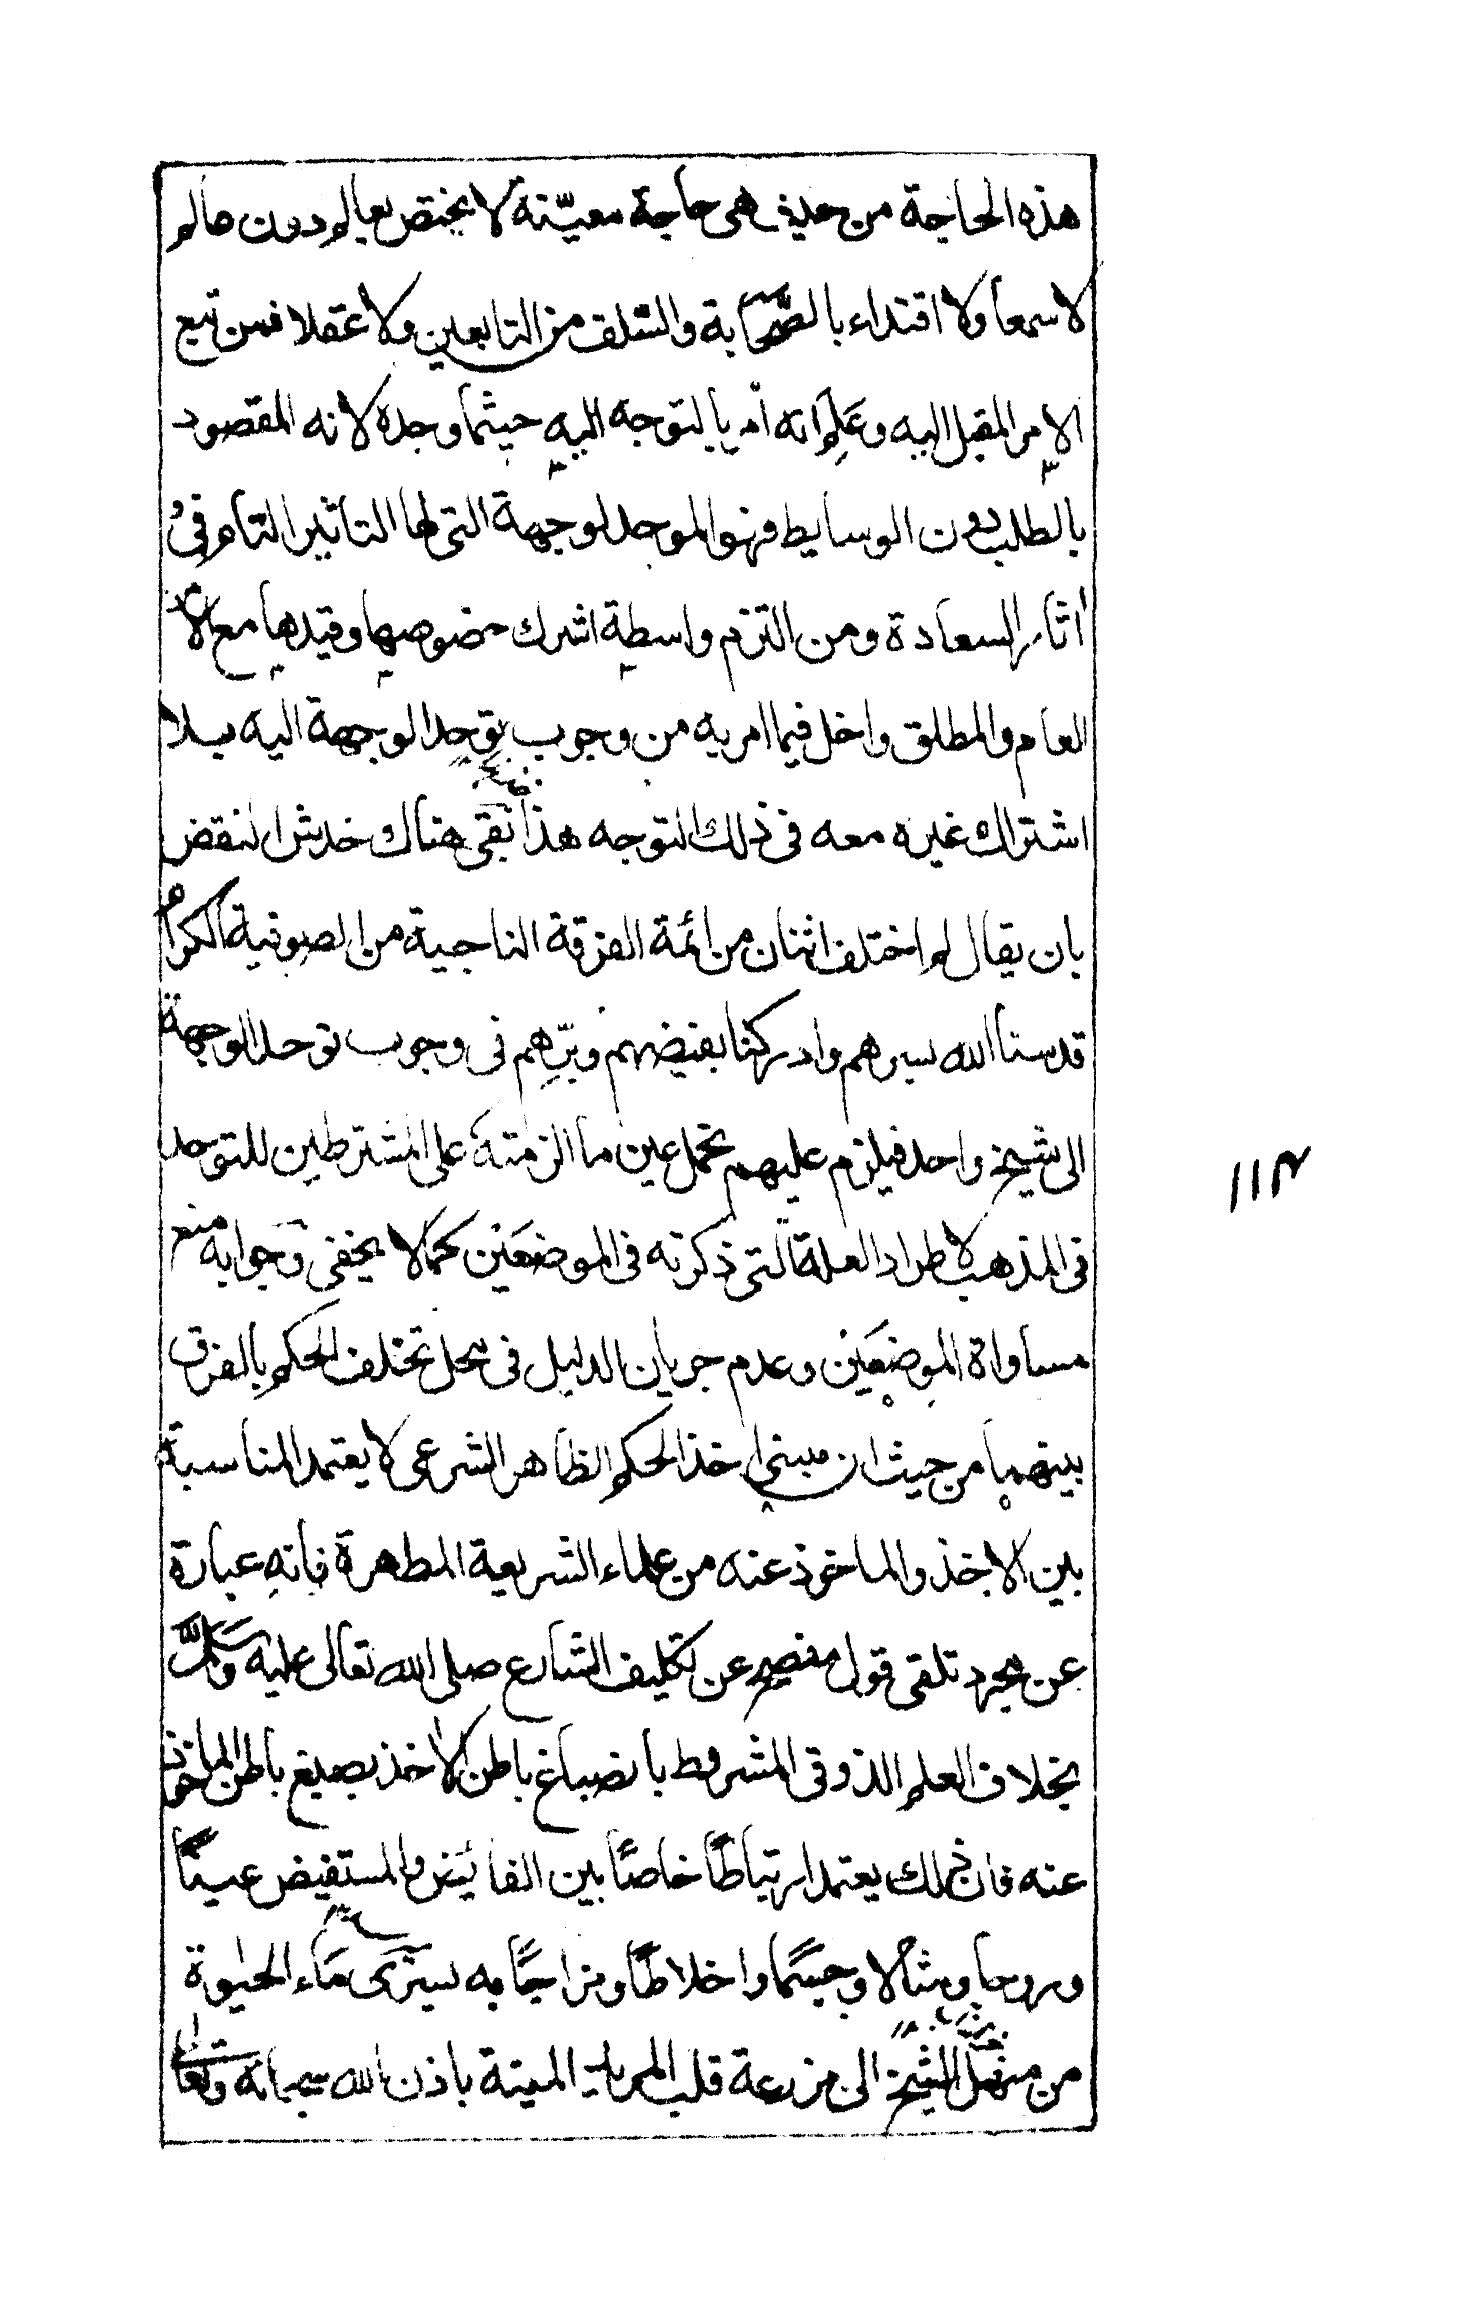 هذه الحاجة من حيث هى حاجة معيّنة لا يختص بعالم دون عالم
لا سمعا ولا اقتداء بالصّحابة والسّلف من التابعين ولا عقلا فمن تبع
الامر المقبل اليه وعَلِمَ انه أمر بالتوجه اليه حيثما وجده لانه المقصود
بالطلب دون الوسايط فهو الموحد لوجهة التى لها التاثير التام فى
اثار السعادة ومن التزم واسطة اشرك خصوصها وقيدها مع الامر
العام والمطلق واخل فيما امر به من وجوب توحد الوجهة اليه بلا
اشتراك غيره معه فى ذلك التوجه هذا بقى هناك خدش النقض
بان يقال لم اختلف اثنان من ائمة الفرقة الناجية من الصوفية الكرام
قدسنا الله بسرهم وادركنا بفيضهم وبرّهم فى وجوب توحد الوجهة
الى شيخ واحد فيلزم عليهم تحمل عين ما الزمته على المشترطين للتوحد
فى المذهب لاطراد العلة التى ذكرته فى الموضعين كما لا يخفى وجوابه منع
مساواة الموضعين وعدم جريان الدليل فى محل تخلف الحكم بالفرق
بينهما من حيث ان مبنى اخذ الحكم الظاهر الشرعى لا يعتمد المناسبة
بين الاخذ والماخوذ عنه من علماء الشريعة المطهرة فانه عبارة
عن مجرد تلقى قول مفصح عن تكليف الشارع صلى الله تعالى عليه وسلم
بخلاف العلم الذوقى المشروط بانصباغ باطن الاخذ بصبغ باطن الماخوذ
عنه فان ذلك يعتمد ارتباطًا خاصًا بين الفائض والمستفيض عينًا
وروحا ومثالا وجسمًا واخلاطًا ومزاجًا به يسرى ماء الحيوة
من منهل الشيخ الى مزرعة قلب المريد الميتة باذن الله سبحانه وتعالى
١١٣